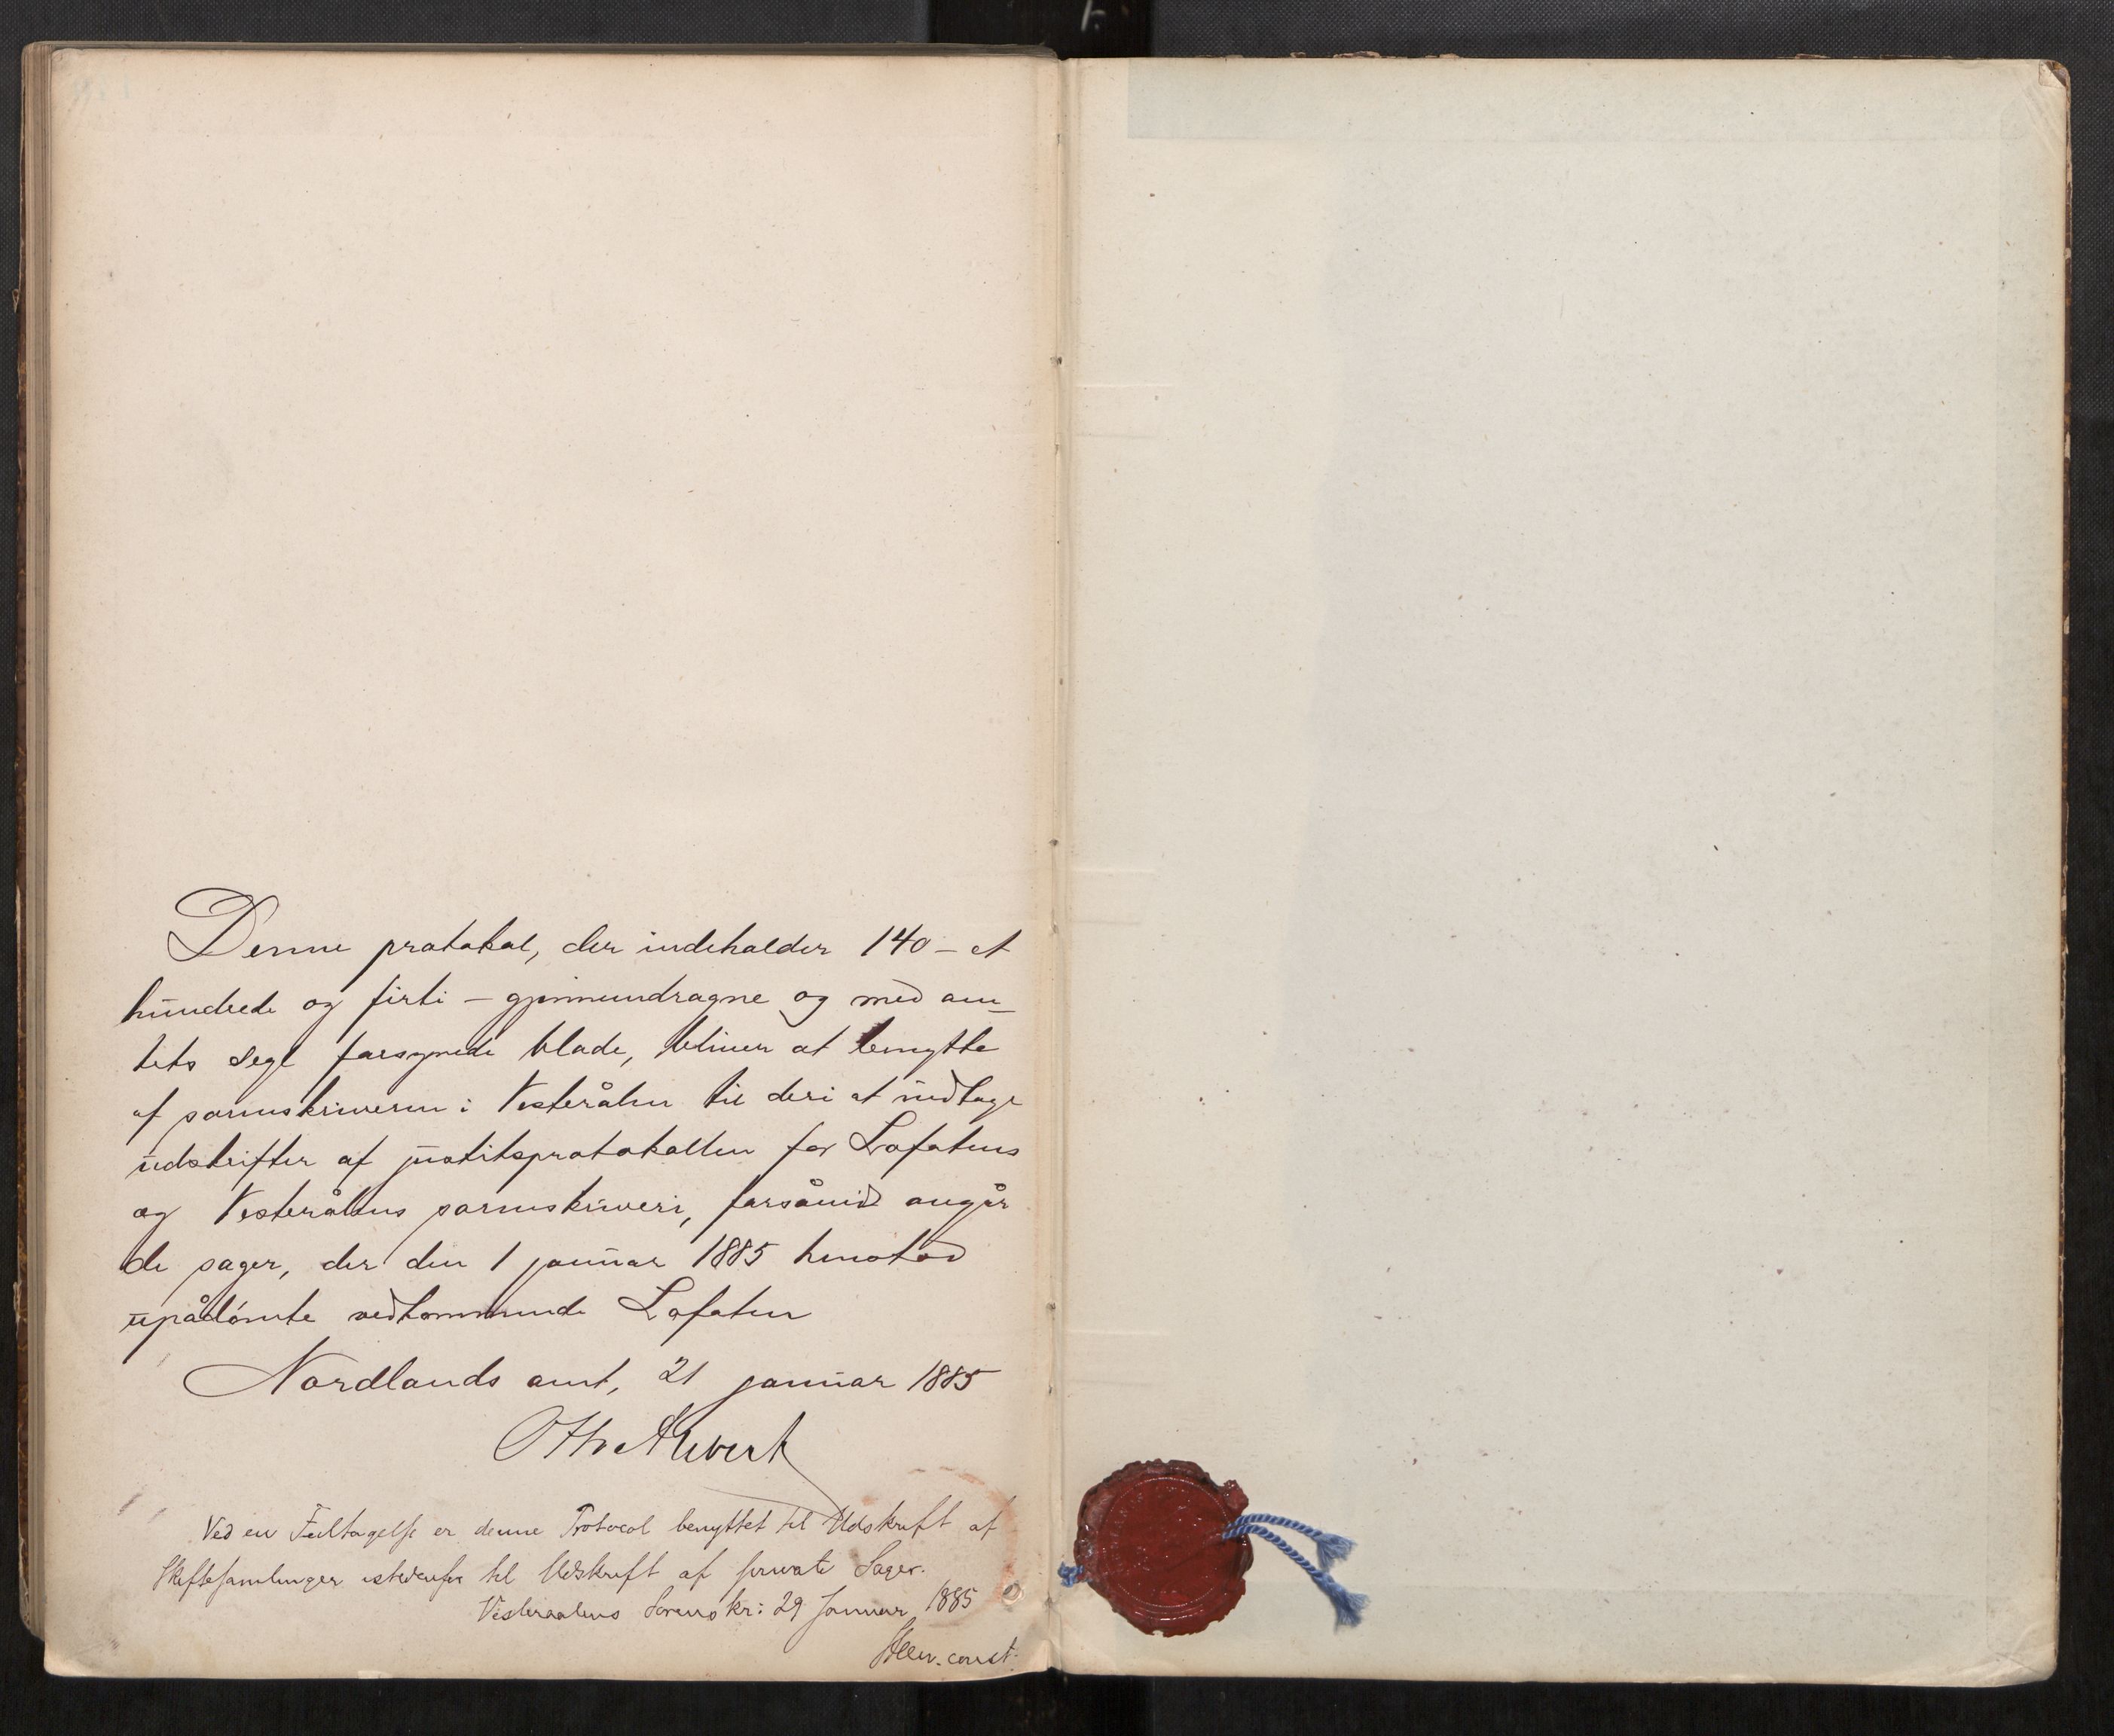 Denne protokol, der indeholder 140 – et
hundrede og firti – gjennemdragne og med am-
tets segl forsynede blade, bliver at benytte
af sorenskriveren i Vesterålen til deri at indtage
udskrifter af justitsprotokollen for Lofotens
og Vesterålens sorenskriveri, forsåvidt angår
de sager, der den 1 januar 1885 henstod
upådømte vedkommende Lofoten
Nordlands amt, 21 januar 1885
Ved en Feiltagelse er denne Protocol benyttet til Udskrift af
Skiftesamlinger istedenfor til Udskrift af private Sager.
Vesteraalens Sorenskr: 29 Januar 1885
const.